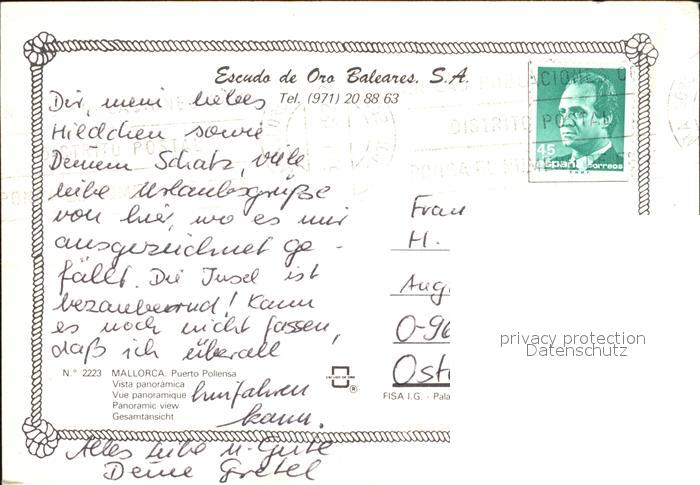 Escudo de Oro Baleares. S.A.
Tel. (971) 20 88 63
Dir, mein liebes
Hildchen sowie
Deinem Schatz, viele
liebe Urlaubsgrüße
von hier, wo es mir
ausgezeichnet ge-
fällt. Die Insel ist
bezaubernd! Kann
es noch nicht fassen,
daß ich überall
hinfahren
kann.
Alles Liebe u. Gute
Deine Gretel
45
españa correos
DISTRITO POSTAL
DISTRITO POSTAL
Frau
H.
Aug
O-96
Ost
privacy protection
Datenschutz
N.º 2223 MALLORCA. Puerto Pollensa
Vista panorámica
Vue panoramique
Panoramic view
Gesamtansicht
ESCUDO DE ORO
®
FISA I.G. - Pala